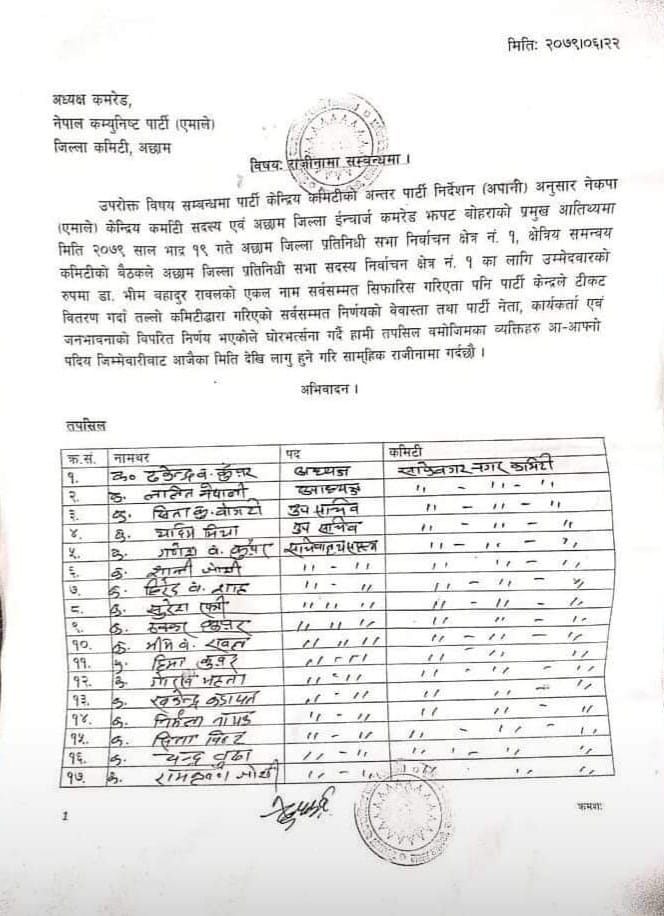 मितिः २०७९।०६।२२
अध्यक्ष कमरेड,
नेपाल कम्युनिष्ट पार्टी (एमाले)
जिल्ला कमिटी, अछाम
विषयः राजीनामा सम्बन्धमा ।
उपरोक्त विषय सम्बन्धमा पार्टी केन्द्रिय कमिटीको अन्तर पार्टी निर्देशन (अपानी) अनुसार नेकपा
(एमाले) केन्द्रिय कमिटी सदस्य एवं अछाम जिल्ला ईन्चार्ज कमरेड झपट बोहराको प्रमुख आतिथ्यमा
मिति २०७९ साल भाद्र १९ गते अछाम जिल्ला प्रतिनिधी सभा निर्वाचन क्षेत्र नं. १, क्षेत्रिय समन्वय
कमिटीको बैठकले अछाम जिल्ला प्रतिनिधी सभा सदस्य निर्वाचन क्षेत्र नं. १ का लागि उम्मेदवारको
रुपमा डा. भीम बहादुर रावलको एकल नाम सर्वसम्मत सिफारिस गरिएता पनि पार्टी केन्द्रले टीकट
वितरण गर्दा तल्लो कमिटीद्वारा गरिएको सर्वसम्मत निर्णयको बेवास्ता तथा पार्टी नेता, कार्यकर्ता एवं
जनभावनाको विपरित निर्णय भएकोले घोरभर्त्सना गर्दै हामी तपसिल वमोजिमका व्यक्तिहरु आ-आफ्नो
पदिय जिम्मेवारीबाट आजैका मिति देखि लागु हुने गरि सामुहिक राजीनामा गर्दछौ ।
अभिवादन ।
तपसिल
क्र.सं. नामथर पद कमिटी
१. क० टकेन्द्र व. कुँवर अध्यक्ष साँफेबगर नगर कमिटी
२. क. ललित नेपाली उपाध्यक्ष ,, - ,, - ,,
३. क. उप सचिव ,, - ,, - ,,
४. क. उप सचिव ,, - ,, - ,,
५. क. गणेश व. कुँवर ,, - ,, - ,,
६. क. जोशी ,, - ,, ,, - ,, - ,,
७. क. व. शाह ,, - ,, ,, - ,, - ,,
८. क. सुरेश ,, ,, ,, ,, - ,, - ,,
९. क. कुँवर ,, ,, ,, ,, - ,, - ,,
१०. क. भीम व. रावल ,, ,, ,, ,, - ,, - ,,
११. क. हिमा कुँवर ,, - ,, ,, ,, - ,,
१२. क. ,, - ,, ,, ,, - ,,
१३. क. कडायत ,, - ,, ,, ,, - ,,
१४. क. निर्मला ,, - ,, ,, ,, - ,,
१५. क. ,, - ,, ,, - ,, - ,,
१६. क. चन्द्र बुढा ,, - ,, ,, - ,, - ,,
१७. क. जोशी ,, - ,, ,, ,, ,,
1 क्रमशः